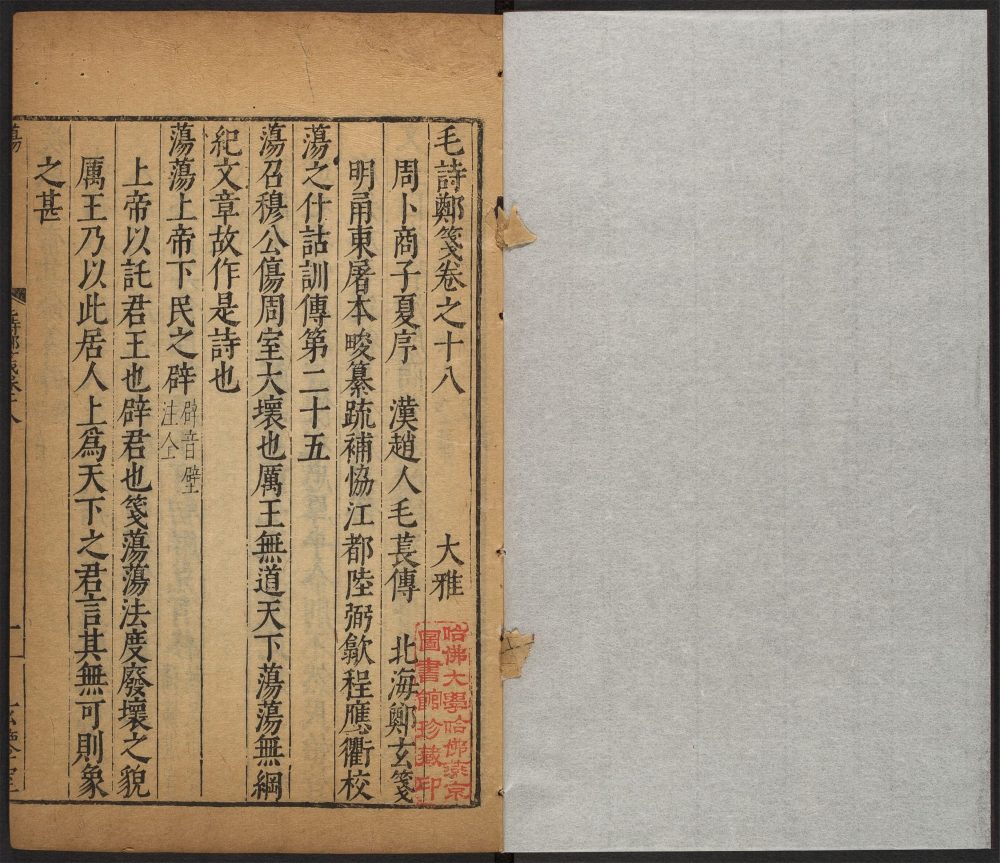 毛詩鄭箋卷之十八　大雅
周卜商子夏序　漢趙人毛萇傳　北海鄭玄箋
明甬東屠本畯纂疏補恊江都陸弼歙程應衢校
蕩之什詁訓傳第二十五
蕩召穆公傷周室大壞也厲王無道天下蕩蕩無綱
紀文章故作是詩也
蕩蕩上帝下民之辟辟音璧
注仝
上帝以託君王也辟君也箋蕩蕩法度廢壞之貌
厲王乃以此居人上爲天下之君言其無可則象
之甚
蕩
一
哈佛大學哈佛燕京
圖書館珍藏印